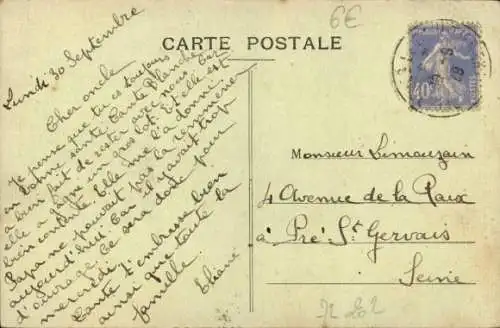 6€
CARTE POSTALE
Lundi 30 Septembre
Cher oncle
Je pense que tu es toujours
en bonne santé. Tante Blanche
a bien fait de rester avec nous car
elle a gagné un gros lot. Et elle est
bien contente. Elle me l'a donné.
Papa ne pouvait pas la ramener
aujourd'hui car il y avait trop
d'ouvrage. Ce sera donc pour
mercredi.
Tante t'embrasse bien
ainsi que toute la
famille.
Eliane
40c
Monsieur Limouzain
4 Avenue de la Paix
à Pré St Gervais
Seine